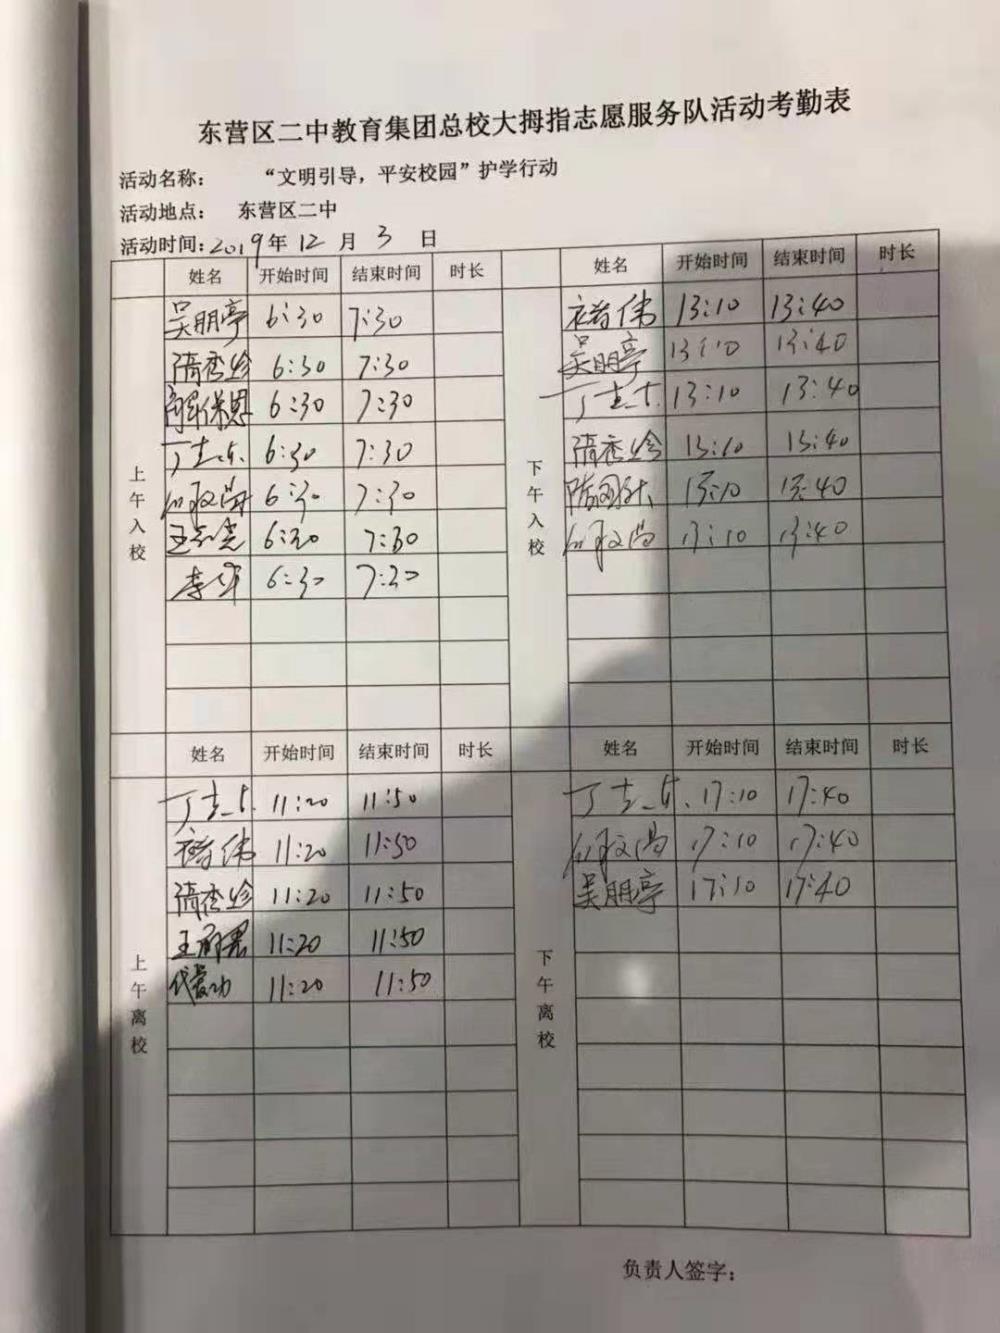 东营区二中教育集团总校大拇指志愿服务队活动考勤表
活动名称： “文明引导，平安校园”护学行动
活动地点： 东营区二中
活动时间：2019年 12 月 3 日
姓名 开始时间 结束时间 时长 姓名 开始时间 结束时间 时长
上午入校
吴朋亭 6:30 7:30
隋秀珍 6:30 7:30
保恩 6:30 7:30
丁 6:30 7:30
6:30 7:30
王 6:30 7:30
李 6:30 7:30
下午入校
褚伟 13:10 13:40
吴朋亭 13:10 13:40
丁 13:10 13:40
隋秀珍 13:10 13:40
13:10 13:40
13:10 13:40
姓名 开始时间 结束时间 时长 姓名 开始时间 结束时间 时长
上午离校
丁 11:20 11:50
褚伟 11:20 11:50
隋秀珍 11:20 11:50
王 11:20 11:50
代爱功 11:20 11:50
下午离校
丁 17:10 17:40
17:10 17:40
吴朋亭 17:10 17:40
负责人签字：